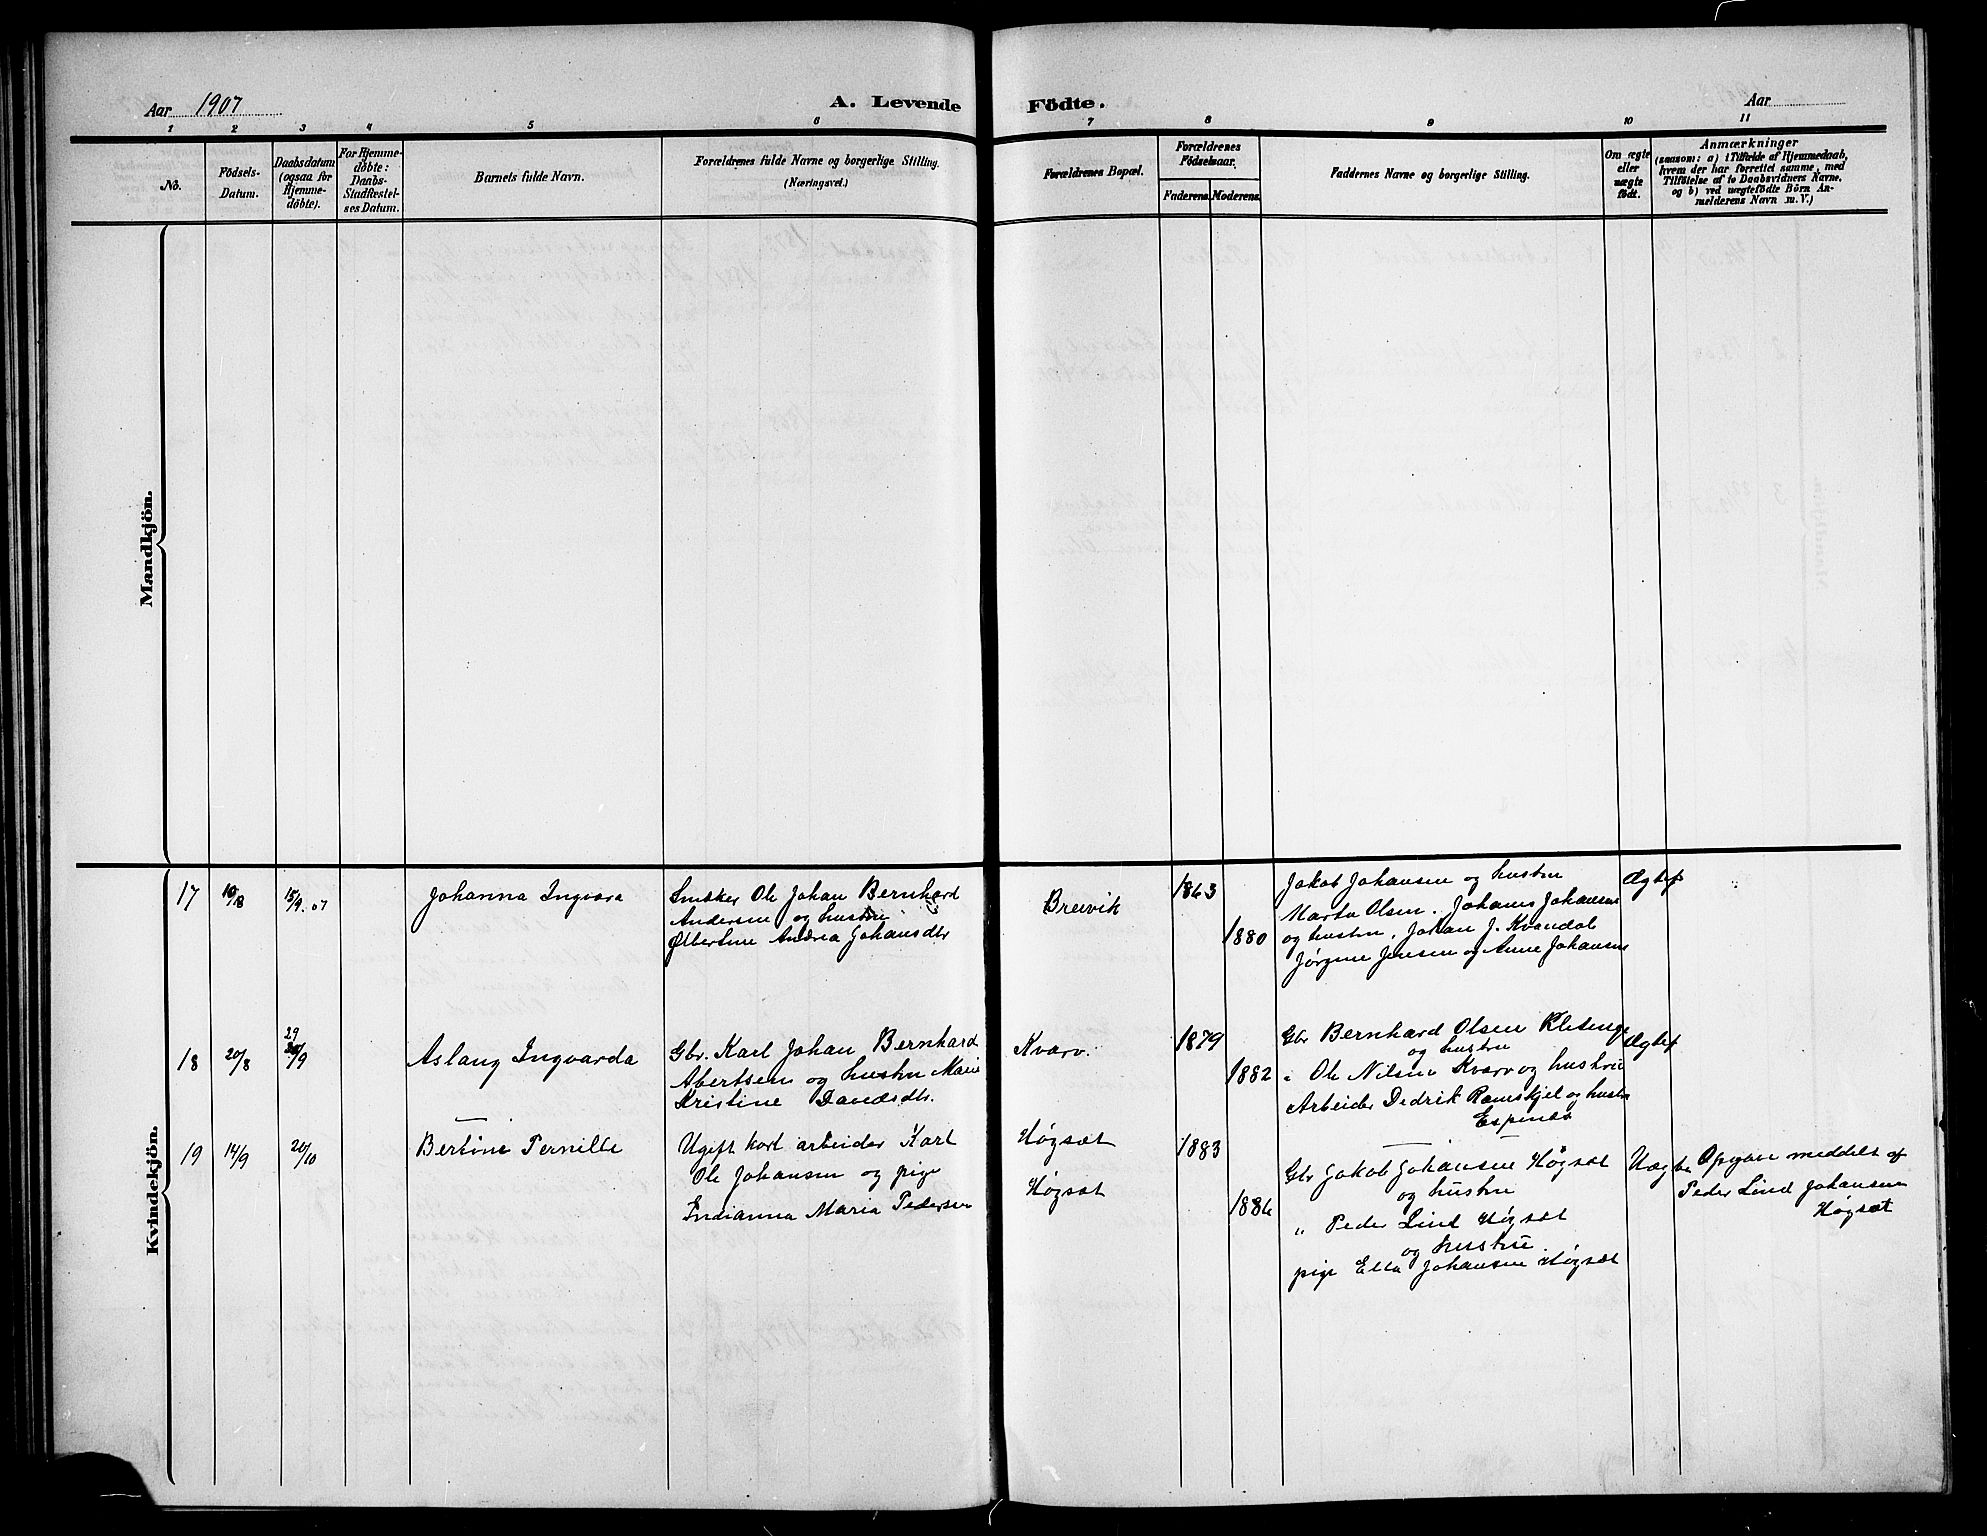 Aar 1907
A. Levende
Födte.
Aar
1 2 3 4 5 6 7 8 9 10 11
No.
Födsels-
Datum.
Daabsdatum
(ogsaa for
Hjemme-
døbte).
For Hjemme-
døbte:
Daabs-
Stadfæstel-
ses Datum.
Barnets fulde Navn.
Forældrenes fulde Navne og borgerlige Stilling.
(Næringsvei.)
Forældrenes Bopæl.
Forældrenes
Födselsaar.
Faderens.
Moderens.
Faddernes Navne og borgerlige Stilling.
Om ægte
eller
uægte
født.
Anmærkninger
(saasom: a) i Tilfælde af Hjemmedaab,
hvem der har forrettet samme, med
Tilföielse af to Daabsvidners Navne,
og b) ved uægtefödte Börn An-
melderens Navn m. V.)
Mandkjön.
Kvindekjön.
17
10/8
15/9.07
Johanna Ingvara
Snedker Ole Johan Bernhard
Andersen og hustru
Olbertine Andrea Johansdtr
Breivik
1863
1880
Jakob Johansen og hustru
Marta Olsen. Johans Johansen
og hustru. Johan J. Kvandal
Jørgine Jensen og Anne Johansen
Ægtef
18
20/8
29/9
Aslaug Ingvarda
Gbr. Karl Johan Bernhard
Abertsen og hustru Marie
Kristine Davidsdtr.
Kvarv.
1879
1882
Gbr Bernhard Olsen
og hustru
" Ole Nilsen Kvarv og hustru
Arbeider Dedrik Ramskjel og hustru
Espenes
Ægtef
19
14/9
20/10
Bertine Pernille
Ugift kort arbeider Karl
Ole Johansen og pige
Indianna Maria Pedersen
Høgsæt
Høgsæt
1883
1886
Gbr Jakob Johansen Høgsæt
og hustru
" Peder Lind Høgsæt
og hustru.
pige Ella Johansen Høgsæt
Uægte
Opgave meddelt af
Peder Lind Johansen
Høgsæt